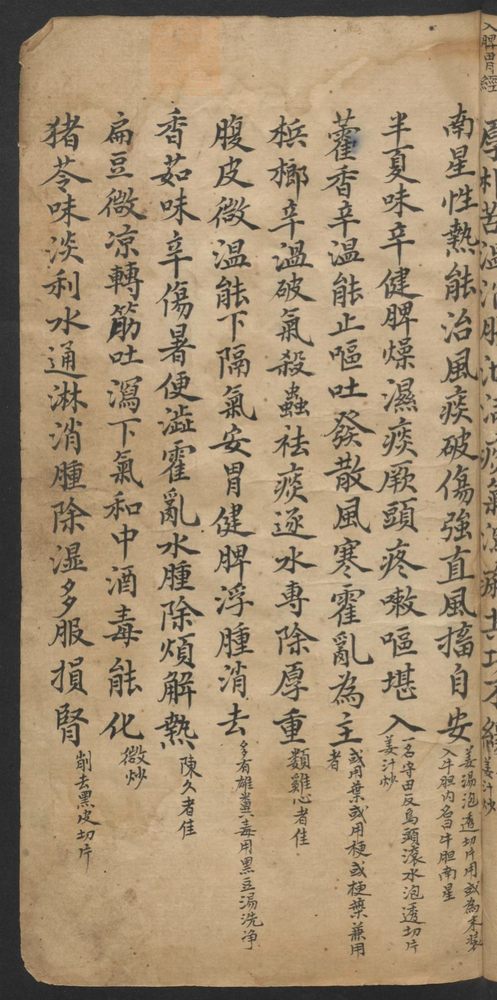 入脾胃經
厚朴苦温消脹泄满痰氣瀉痢其功不緩
姜汁炒
南星性熱能治風痰破傷強直風搐自安
姜湯泡透切片用或為末裝
入牛胆内名曰牛胆南星
半夏味辛健脾燥濕痰厥頭疼嗽嘔堪入
一名守田反烏頭滚水泡透切片
姜汁炒
藿香辛溫能止嘔吐發散風寒霍亂為主
或用葉或用梗或梗葉兼用
者
梹榔辛溫破氣殺蟲祛痰逐水專除厚重
類雞心者佳
腹皮微溫能下隔氣安胃健脾浮腫消去
多有雄糞毒用黑豆湯洗净
香茹味辛傷暑便澁霍亂水腫除煩解熱
陳久者佳
扁豆微凉轉筋吐瀉下氣和中酒毒能化
微炒
猪苓味淡利水通淋消腫除湿多服損腎
削去黑皮切片